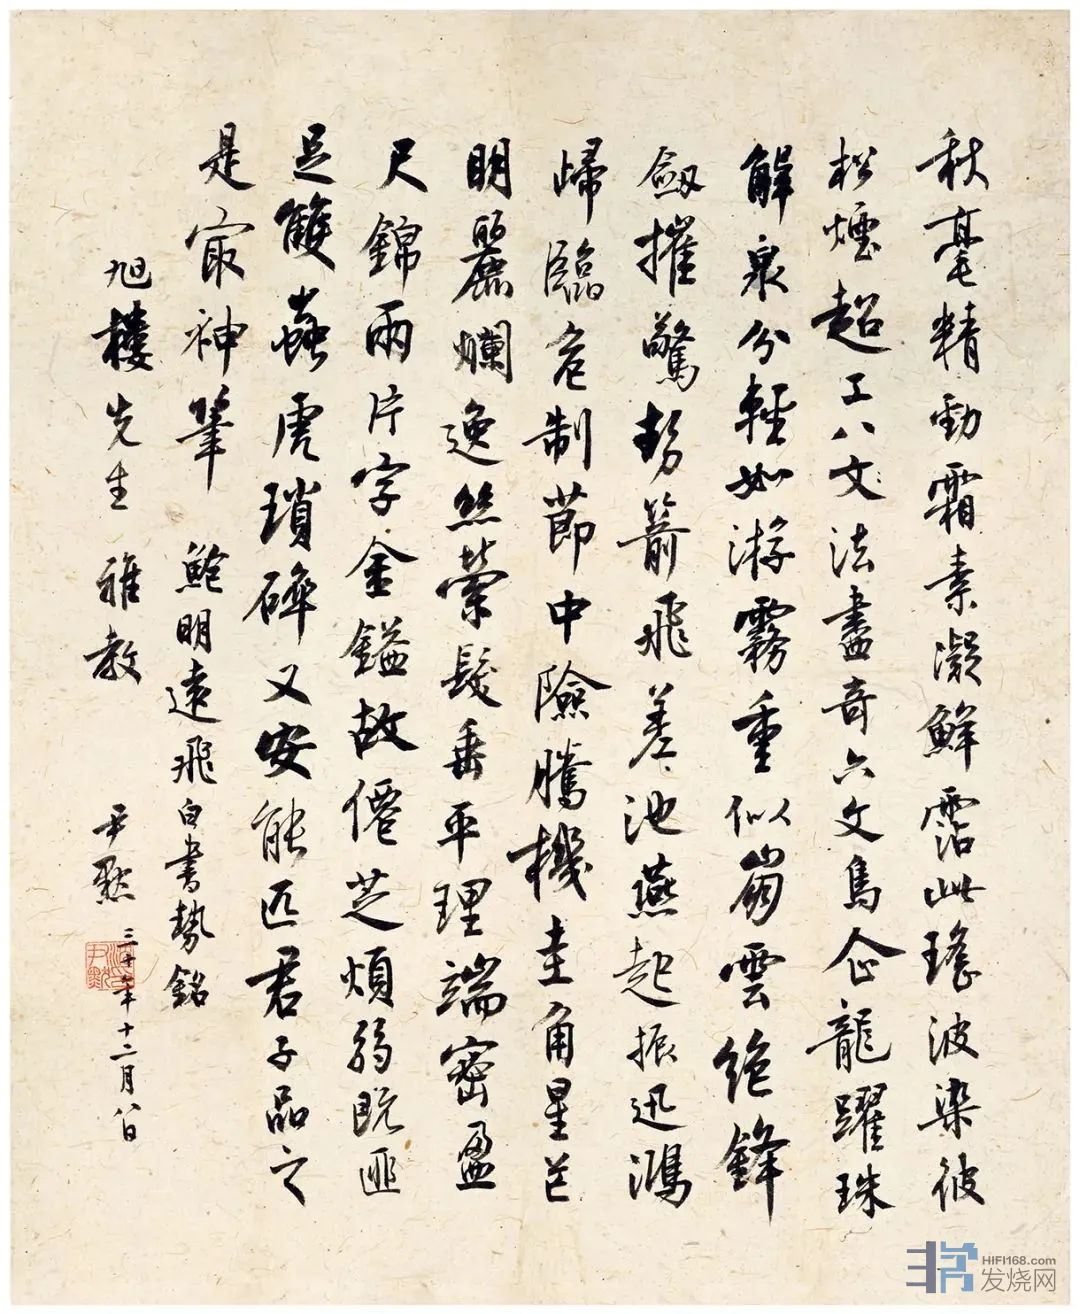 秋毫精勁霜素凝鮮霑此瑤波染彼
松煙超工八文法盡奇六文鳥企龍躍珠
解泉分輕如游霧重似崩雲絕鋒
劔摧驚勢箭飛差池燕起振迅鴻
歸臨危制節中險騰機圭角星芒
明麗爛逸絲縈髮垂平理端密盈
尺錦兩片字金鎰故僊芝煩弱既匪
足雙蟲虎瑣碎又安能匹君子品之
是冣神筆 鮑明遠飛白書勢銘
旭樓先生 雅教 尹默 三十年十二月八日
HIFI168.com
发烧网